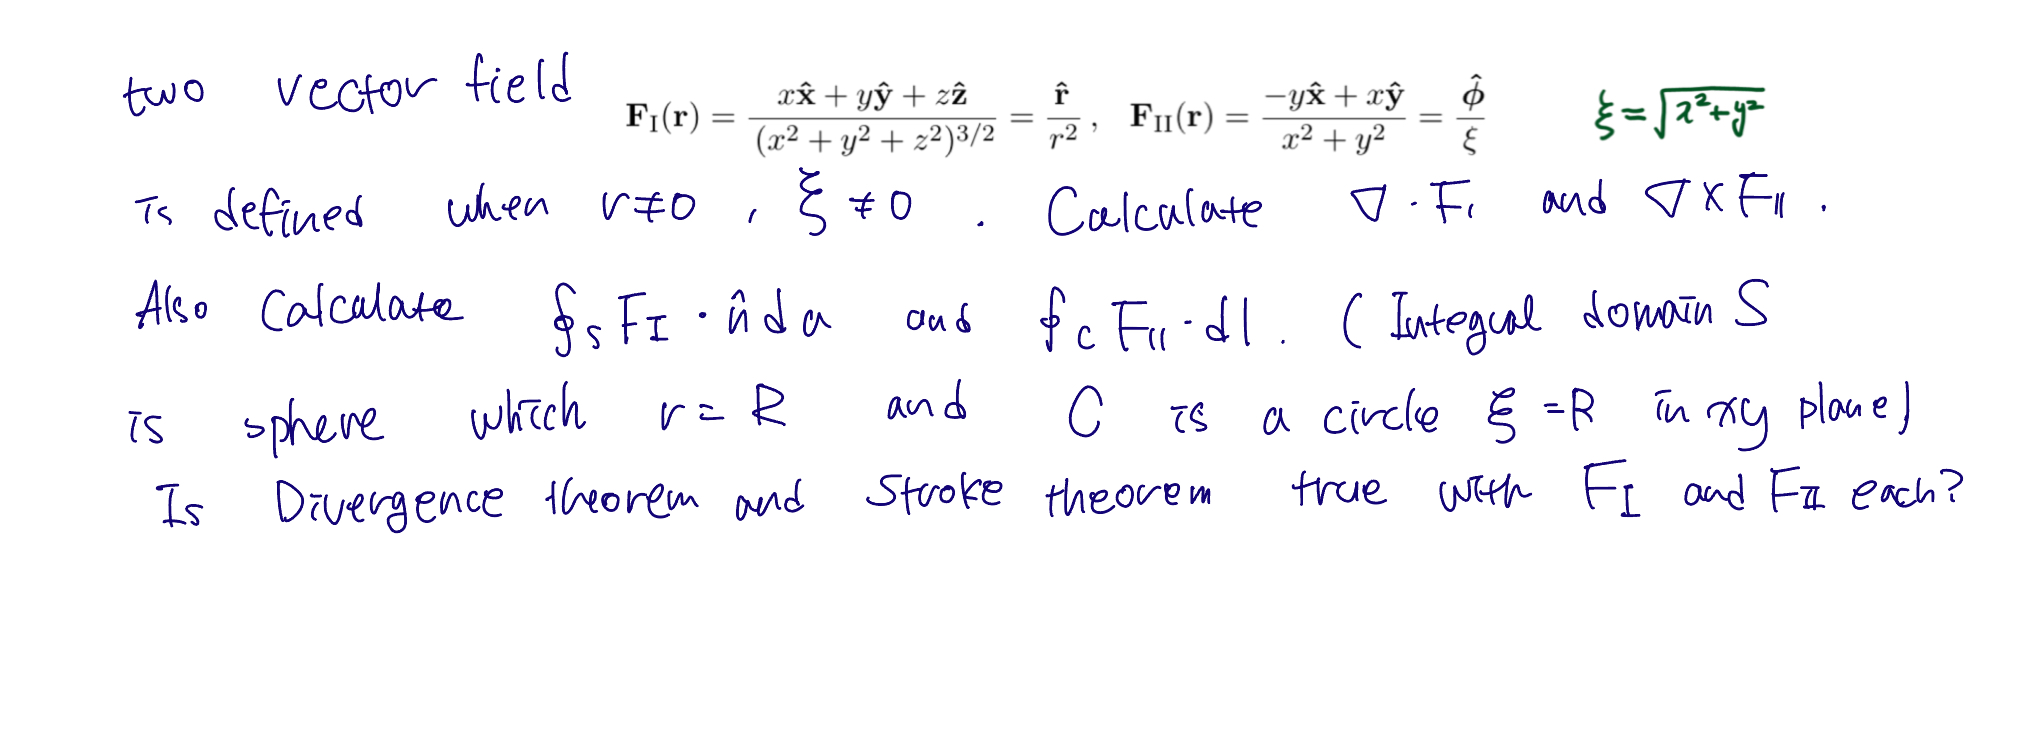 two vector field F_I(r) = (xx̂ + yŷ + zẑ)/(x² + y² + z²)^{3/2} = r̂/r² , F_II(r) = (−yx̂ + xŷ)/(x² + y²) = φ̂/ξ ξ = √(x²+y²)
is defined when r≠0 , ξ ≠ 0 . Calculate ∇ · F_I and ∇ × F_II .
Also Calculate ∮_S F_I · n̂ da and ∮_C F_II · dl . ( Integral domain S
is sphere which r = R and C is a circle ξ = R in xy plane)
Is Divergence theorem and Stroke theorem true with F_I and F_II each?